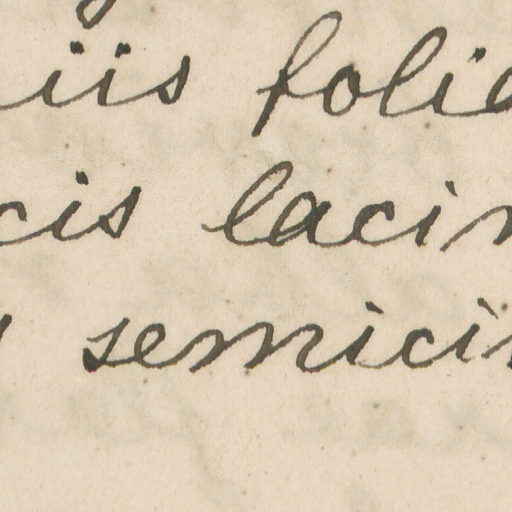 iis folia
cis lacin
semicir